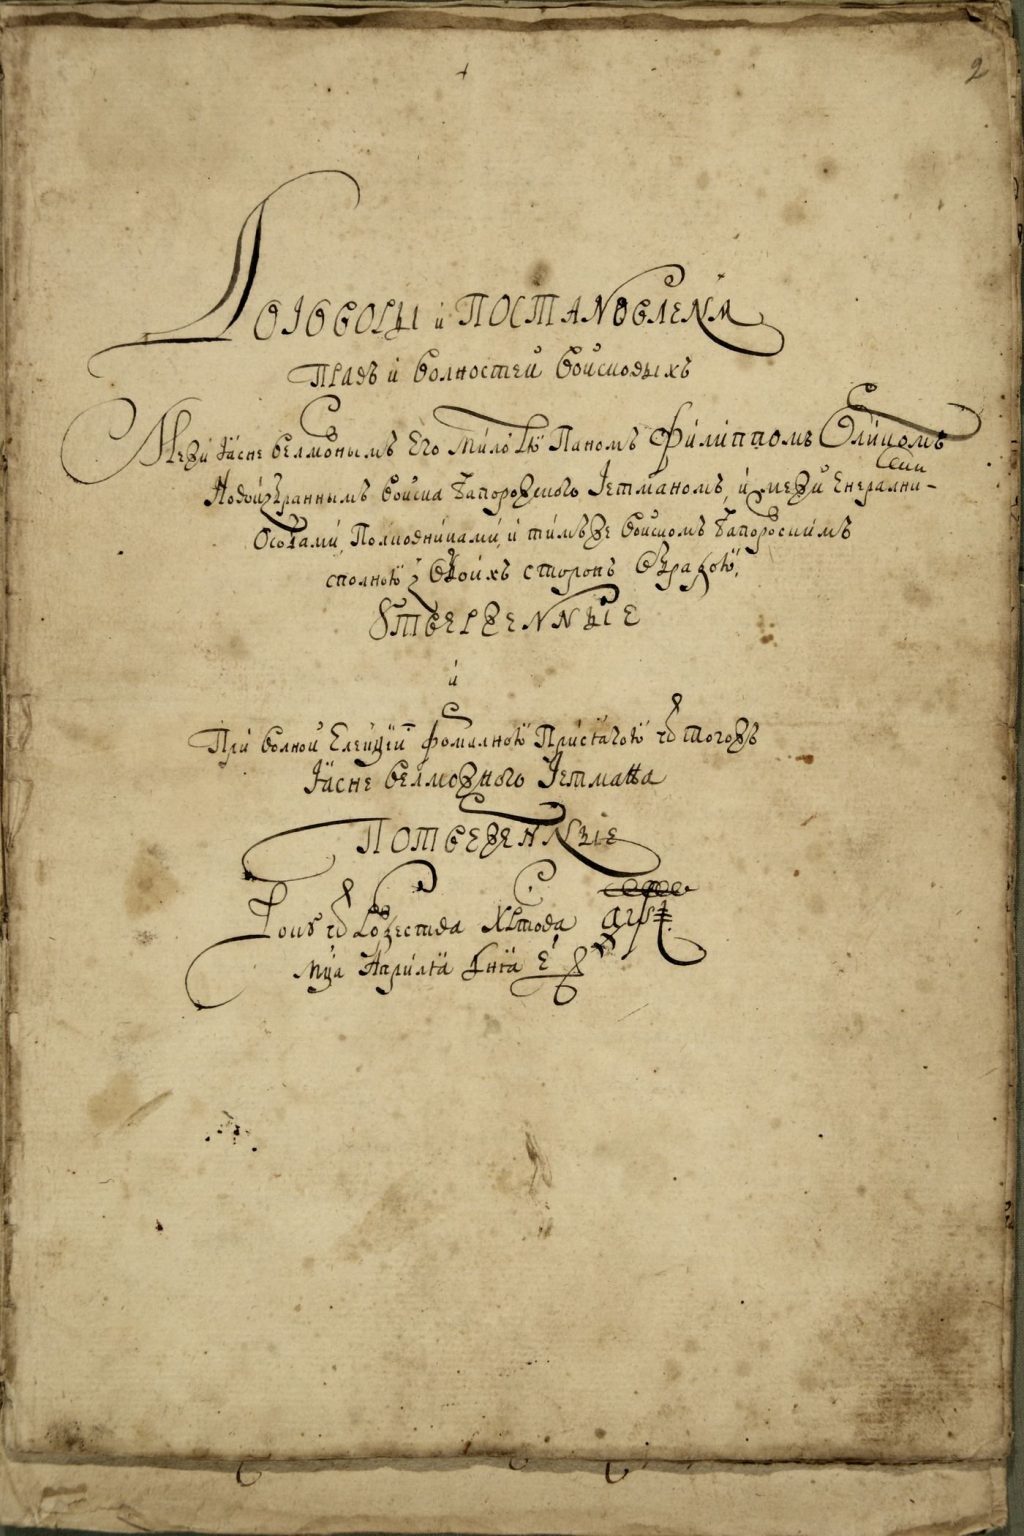 2
Договоры и ПОСТАНОВЛЕНѦ
Правъ и волностей войсковыхъ
Межи Ясне велможнымъ Его милостю Паномъ Филиппомъ Ѡрликомъ
Новоизбраннымъ войска Запорожского Гетманомъ, и межи Енерални-
ми
Особами, Полковниками, и тимъже войскомъ Запорозскимъ
сполною з обоихъ сторонъ обрадою,
Ꙋтверженные
и
При волной Елекции формалною присягою ѿ тогожъ
Ясне велможного Гетмана
Потверженные
Року ѿ Рожества Христова аѱі
мца Априля дня е҃